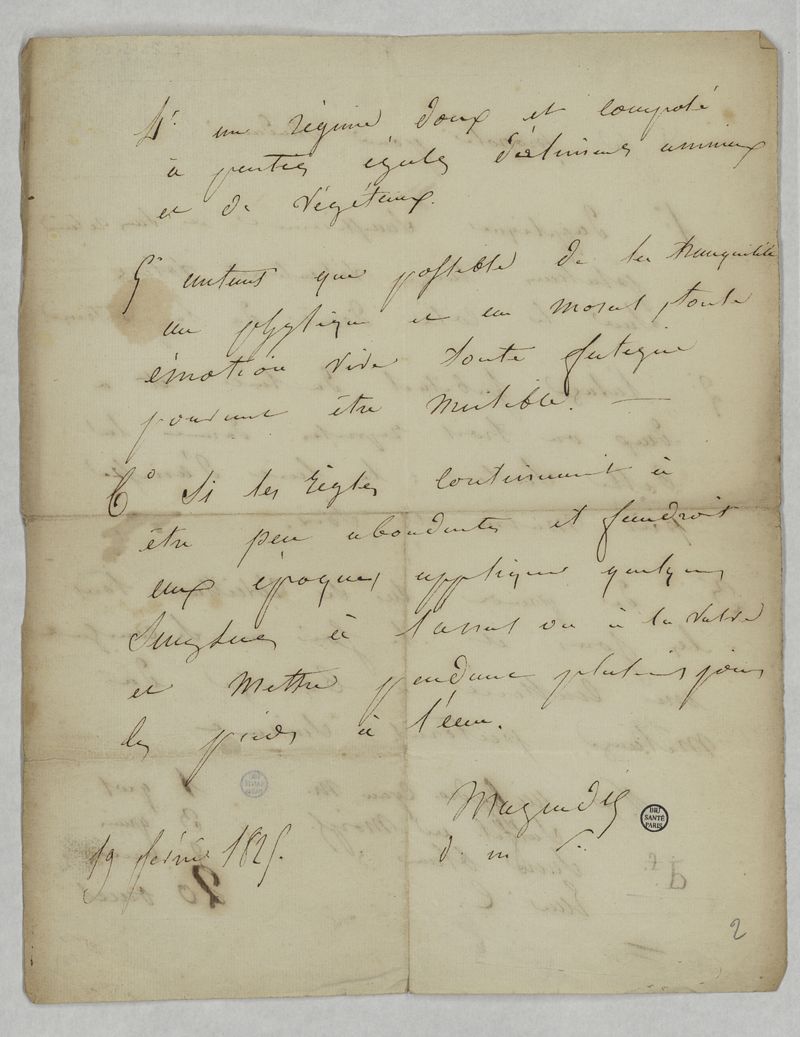 4° une régime doux et composé
à parties égales d'alimens animaux
et de végétaux.
5° autant que possible de la tranquilité
au physique et au moral, toute
émotion vive toute fatigue
pouvant être nuisible. —
6° Si les règles continuaient à
être peu abondantes il faudroit
aux époques appliquer quelques
Sangsues à l'anus ou à la vulve
et mettre pendant plusieurs jours
les pieds à l'eau.
Magendie
d. m
BIU
SANTÉ
PARIS
19 février 1825.
2